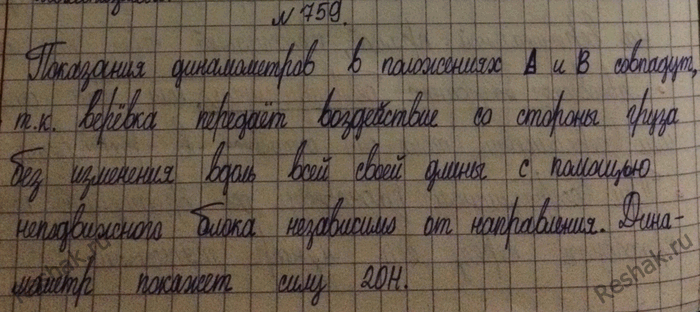 №759.
Показания динамометров в положениях А и В совпадут,
т.к. верёвка передаёт воздействие со стороны груза
без изменения вдоль всей своей длины с помощью
неподвижного блока независимо от направления. Дина-
мометр покажет силу 20Н.
Reshak.ru
Reshak.ru